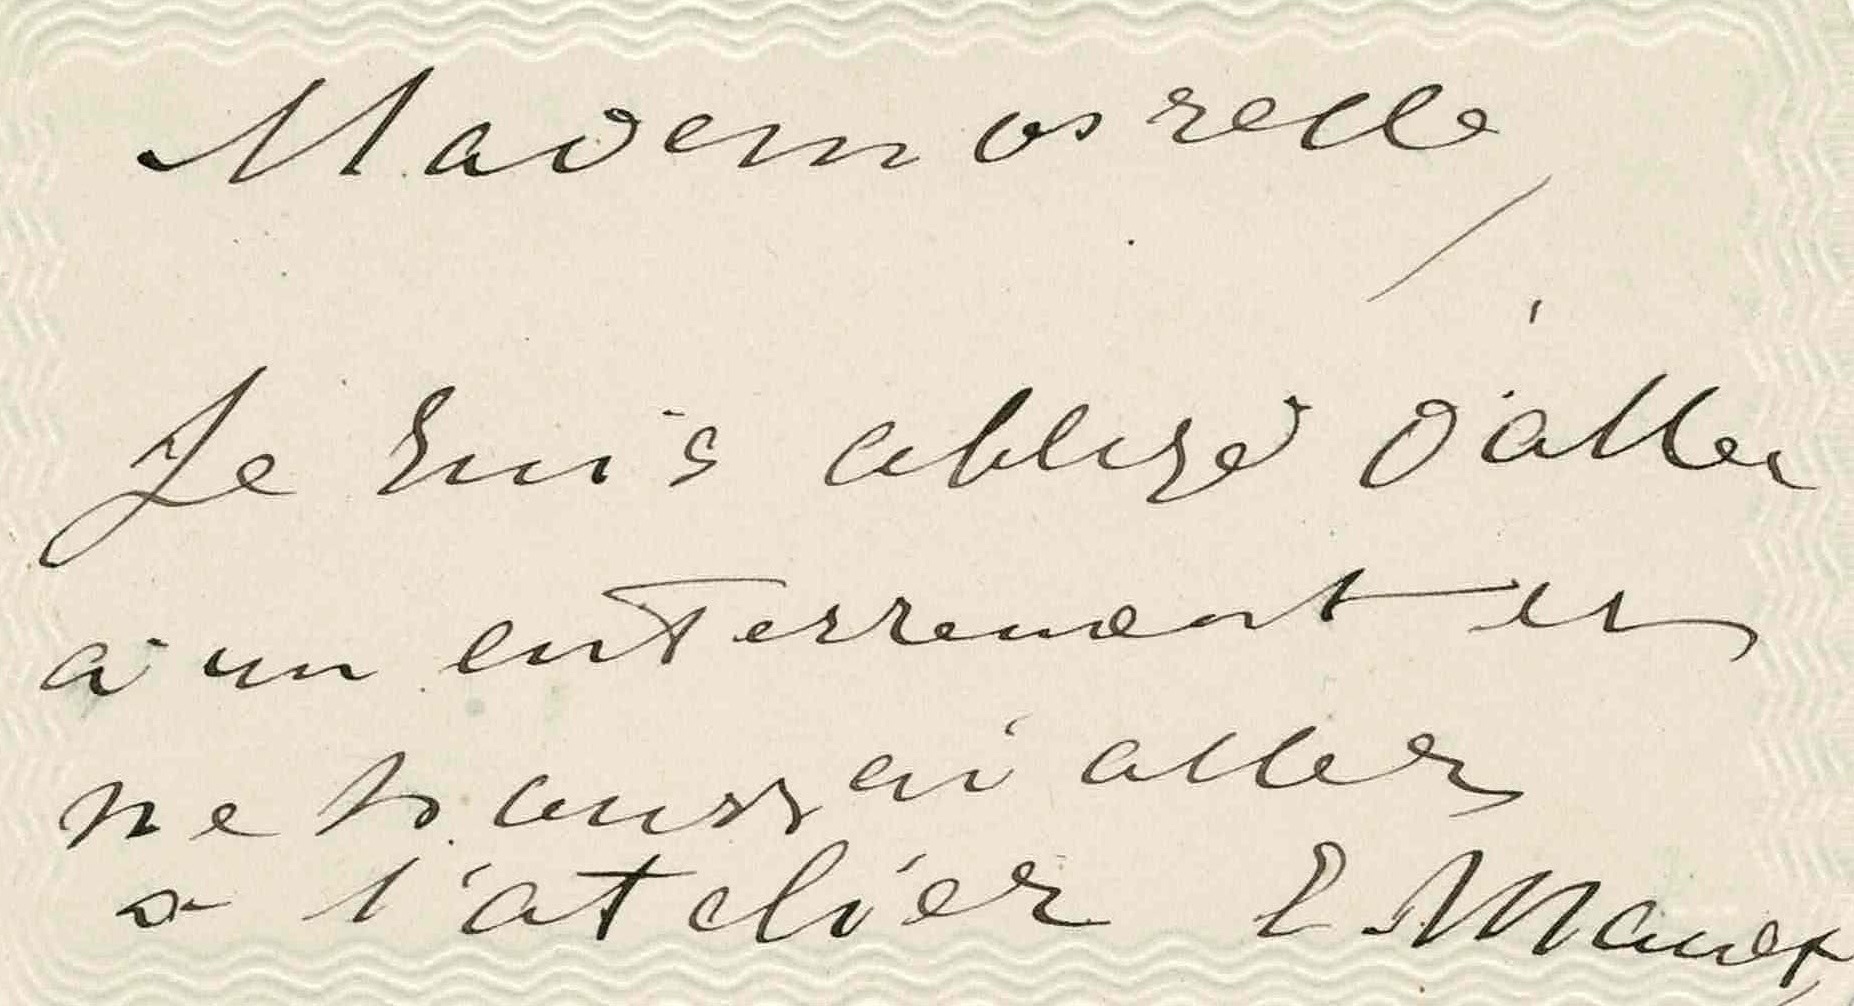 Mademoiselle,
Je suis obligé d'aller
à un enterrement et
ne pourrai aller
à l'atelier E. Manet